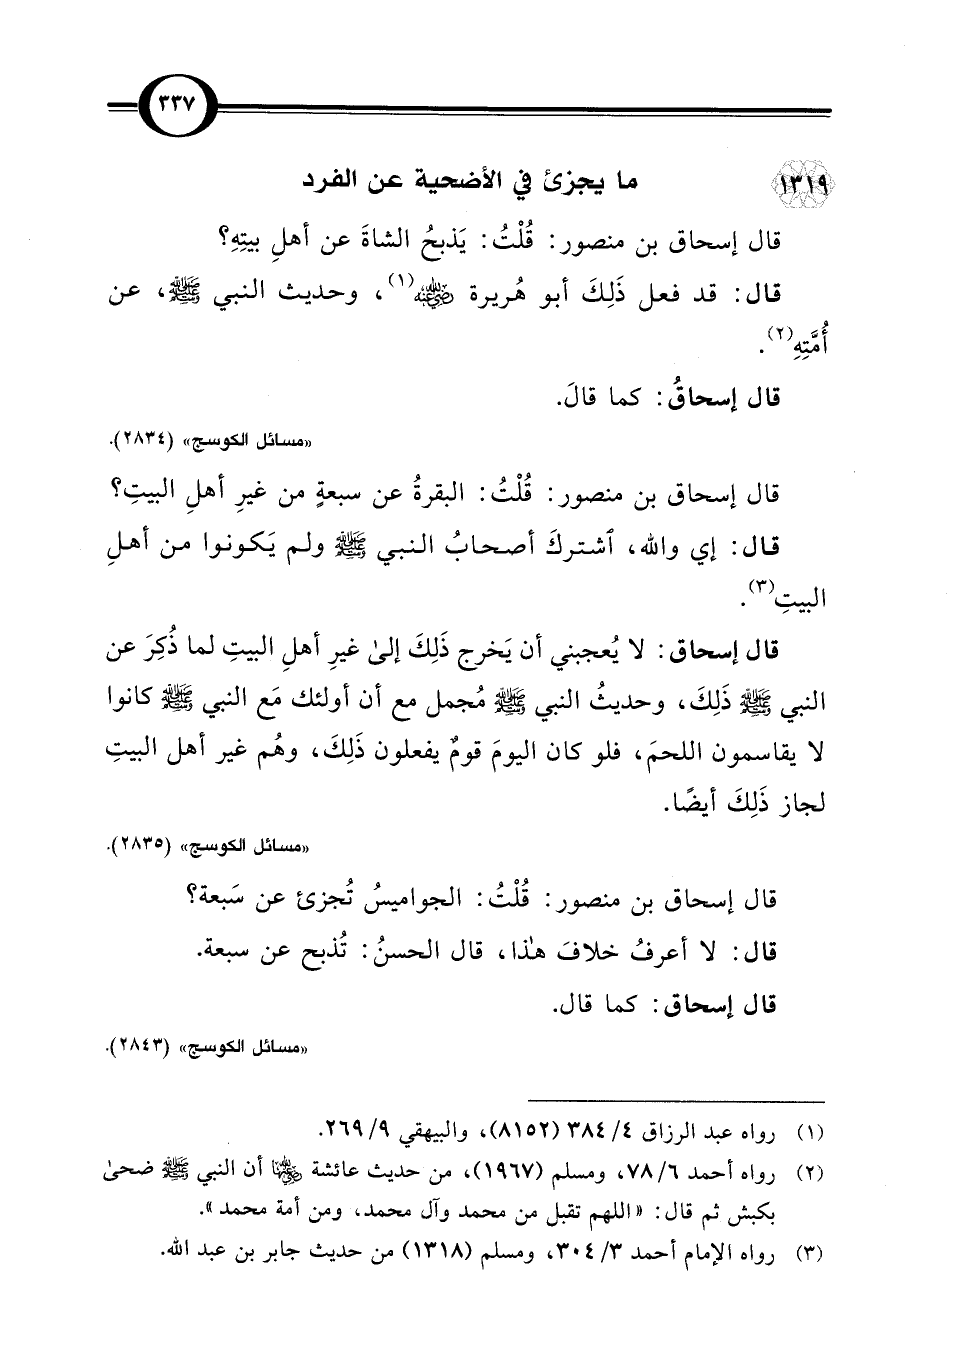 ٣٣٧
١٣١٩ ما يجزئ في الأضحية عن الفرد
قال إسحاق بن منصور: قُلْتُ: يَذبحُ الشاةَ عن أهلِ بيتِهِ؟
قال: قد فعل ذَلِكَ أبو هُريرة رضي الله عنه(١)، وحديث النبي ﷺ، عن
أُمَّتِهِ(٢).
قال إسحاقُ: كما قالَ.
«مسائل الكوسج» (٢٨٣٤).
قال إسحاق بن منصور: قُلْتُ: البقرةُ عن سبعةٍ من غيرِ أهلِ البيتِ؟
قال: إي والله، ٱشتركَ أصحابُ النبي ﷺ ولم يَكونوا من أهلِ
البيتِ(٣).
قال إسحاق: لا يُعجبني أن يَخرج ذَلِكَ إلىٰ غيرِ أهلِ البيتِ لما ذُكِرَ عن
النبي ﷺ ذَلِكَ، وحديثُ النبي ﷺ مُجمل مع أن أولئك مَع النبي ﷺ كانوا
لا يقاسمون اللحمَ، فلو كان اليومَ قومٌ يفعلون ذَلِكَ، وهُم غير أهل البيتِ
لجاز ذَلِكَ أيضًا.
«مسائل الكوسج» (٢٨٣٥).
قال إسحاق بن منصور: قُلْتُ: الجواميسُ تُجزئ عن سَبعة؟
قال: لا أعرفُ خلافَ هذا، قال الحسنُ: تُذبح عن سبعة.
قال إسحاق: كما قال.
«مسائل الكوسج» (٢٨٤٣).
(١) رواه عبد الرزاق ٤/ ٣٨٤ (٨١٥٢)، والبيهقي ٩/ ٢٦٩.
(٢) رواه أحمد ٦/ ٧٨، ومسلم (١٩٦٧)، من حديث عائشة رضي الله عنها أن النبي ﷺ ضحىٰ
بكبش ثم قال: «اللهم تقبل من محمد وآل محمد، ومن أمة محمد».
(٣) رواه الإمام أحمد ٣/ ٣٠٤، ومسلم (١٣١٨) من حديث جابر بن عبد الله.